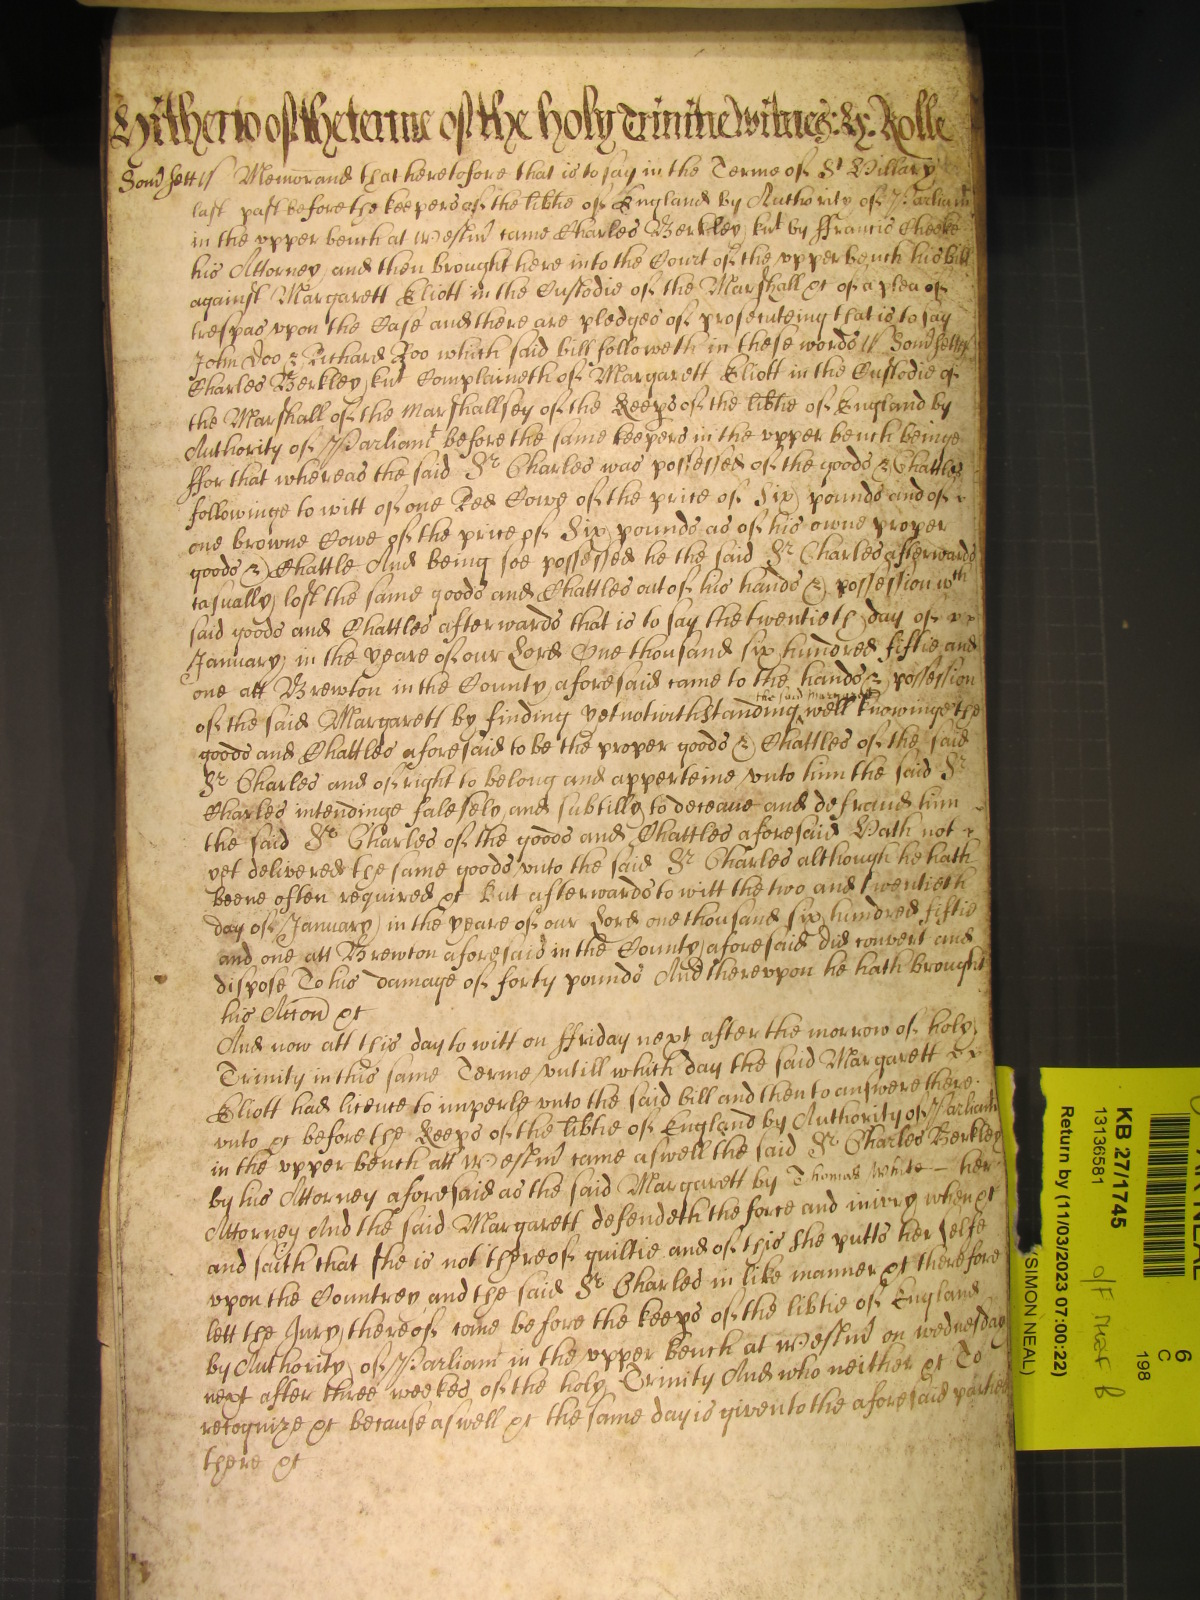 Hitherto of the terme of the holy Trinitie Witnes: H: Rolle
Somsett ss Memorand that heretofore that is to say in the Terme of St Hillary
last past before the keepers of the libtie of England by Authority of Parliamt
in the upper bench at Westm came Charles Berkley knt by ffrancis Cheeke
his Attorney and then brought here into the Court of the upper bench his bill
against Margarett Eliott in the Custodie of the Marshall &c of a plea of
trespas upon the Case and there are pledges of prosecuteing that is to say
John Doo & Richard Roo which said bill followeth in these words ss Somsett ss
Charles Berkley knt Complaineth of Margarett Eliott in the Custodie of
the Marshall of the Marshallsey of the Keeps of the libtie of England by
Authority of Parliamt before the same keepers in the upper bench beinge
ffor that whereas the said Sr Charles was possessed of the goods & Chattles
followinge to witt of one Red Cowe of the price of Six pounds and of
one browne Cowe of the price of Six pounds as of his owne proper
goods & Chattle And being soe possessed he the said Sr Charles afterwards
casually lost the same goods and Chattles out of his hands & possession wch
said goods and Chattles afterwards that is to say the twentieth day of
January in the yeare of our Lord One thousand six hundred fiftie and
one att Brewton in the County aforesaid came to the hands & possession
of the said Margarett by finding yet notwithstanding the said Margarett well knowinge the
goods and Chattles aforesaid to be the proper goods & Chattles of the said
Sr Charles and of right to belong and apperteine unto him the said Sr
Charles intendinge falsely and subtilly to deceaue and defraud him
the said Sr Charles of the goods and Chattles aforesaid Hath not
yet delivered the same goods unto the said Sr Charles although he hath
beene often required &c But afterwards to witt the two and twentieth
day of January in the yeare of our Lord one thousand six hundred fiftie
and one att Brewton aforesaid in the County aforesaid did convert and
dispose To his damage of forty pounds And thereupon he hath brought
his Accon &c
And now att this day to witt on ffriday next after the morrow of holy
Trinity in this same Terme untill which day the said Margarett
Eliott had licence to imperle unto the said bill and then to answere there
unto &c before the Keeps of the libtie of England by Authority of Parliamt
in the upper bench att Westm came aswell the said Sr Charles Berkley
by his Attorney aforesaid as the said Margarett by Thomas White — her
Attorney And the said Margarett defendeth the force and iniury when &c
and saith that she is not thereof guiltie and of this she putts her selfe
upon the Countrey and the said Sr Charles in like manner &c therefore
lett the Jury thereof come before the keeps of the libtie of England
by Authority of Parliamt in the upper bench at Westm on wednesday
next after three weekes of the holy Trinity And who neither &c To
recognize &c because aswell &c the same day is given to the aforesaid parties
there &c
6
C
198
KB 27/1745
13136581
Return by (11/03/2023 07:00:22)
(SIMON NEAL)